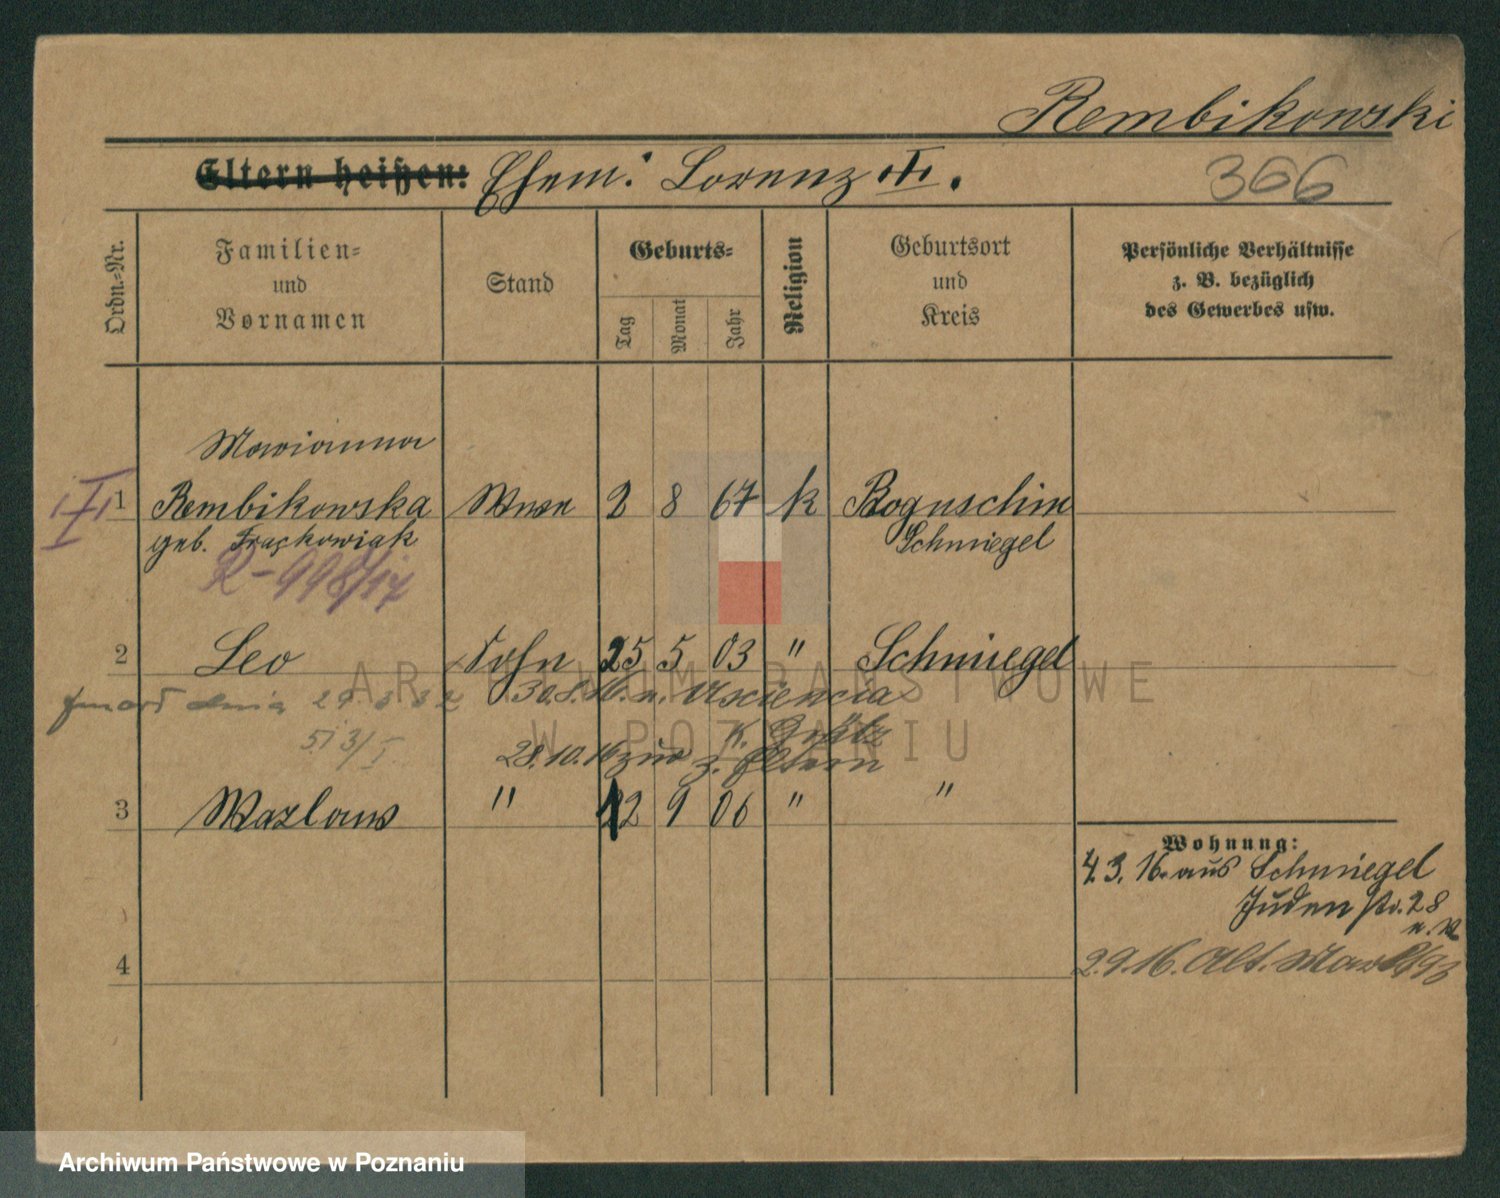 Rembikowski
Eltern heißen: Ehem: Lorenz
366
Ordn.-Nr.
Familien-
und
Vornamen
Stand
Geburts-
Tag
Monat
Jahr
Religion
Geburtsort
und
Kreis
Persönliche Verhältnisse
z. B. bezüglich
des Gewerbes usw.
Marianna
1 Rembikowska Wwe 2 8 67 k Boguschin
geb. Frąckowiak Schmiegel
R-998/17
2 Leo Sohn 25 5 03 " Schmiegel
zmarł dnia
30.8.16. n.
K. Grätz
28.10.16 zur z. Eltern
3 Wazlaus " 12 9 06 " "
Wohnung:
4.3.16. aus Schmiegel
Juden str. 28
4
2.9.16. Alt. Markt 93
ARCHIWUM PAŃSTWOWE
W POZNANIU
Archiwum Państwowe w Poznaniu